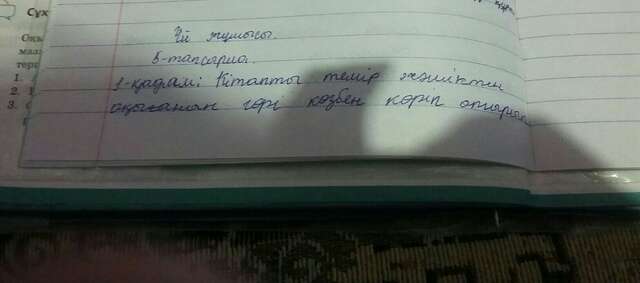 Сұх
Үй жұмысы.
5-тапсырма.
1-қадам: Кітапты темір жәшіктен
оқығанның гөрі көзбен көріп отырып
1.
2.
3.